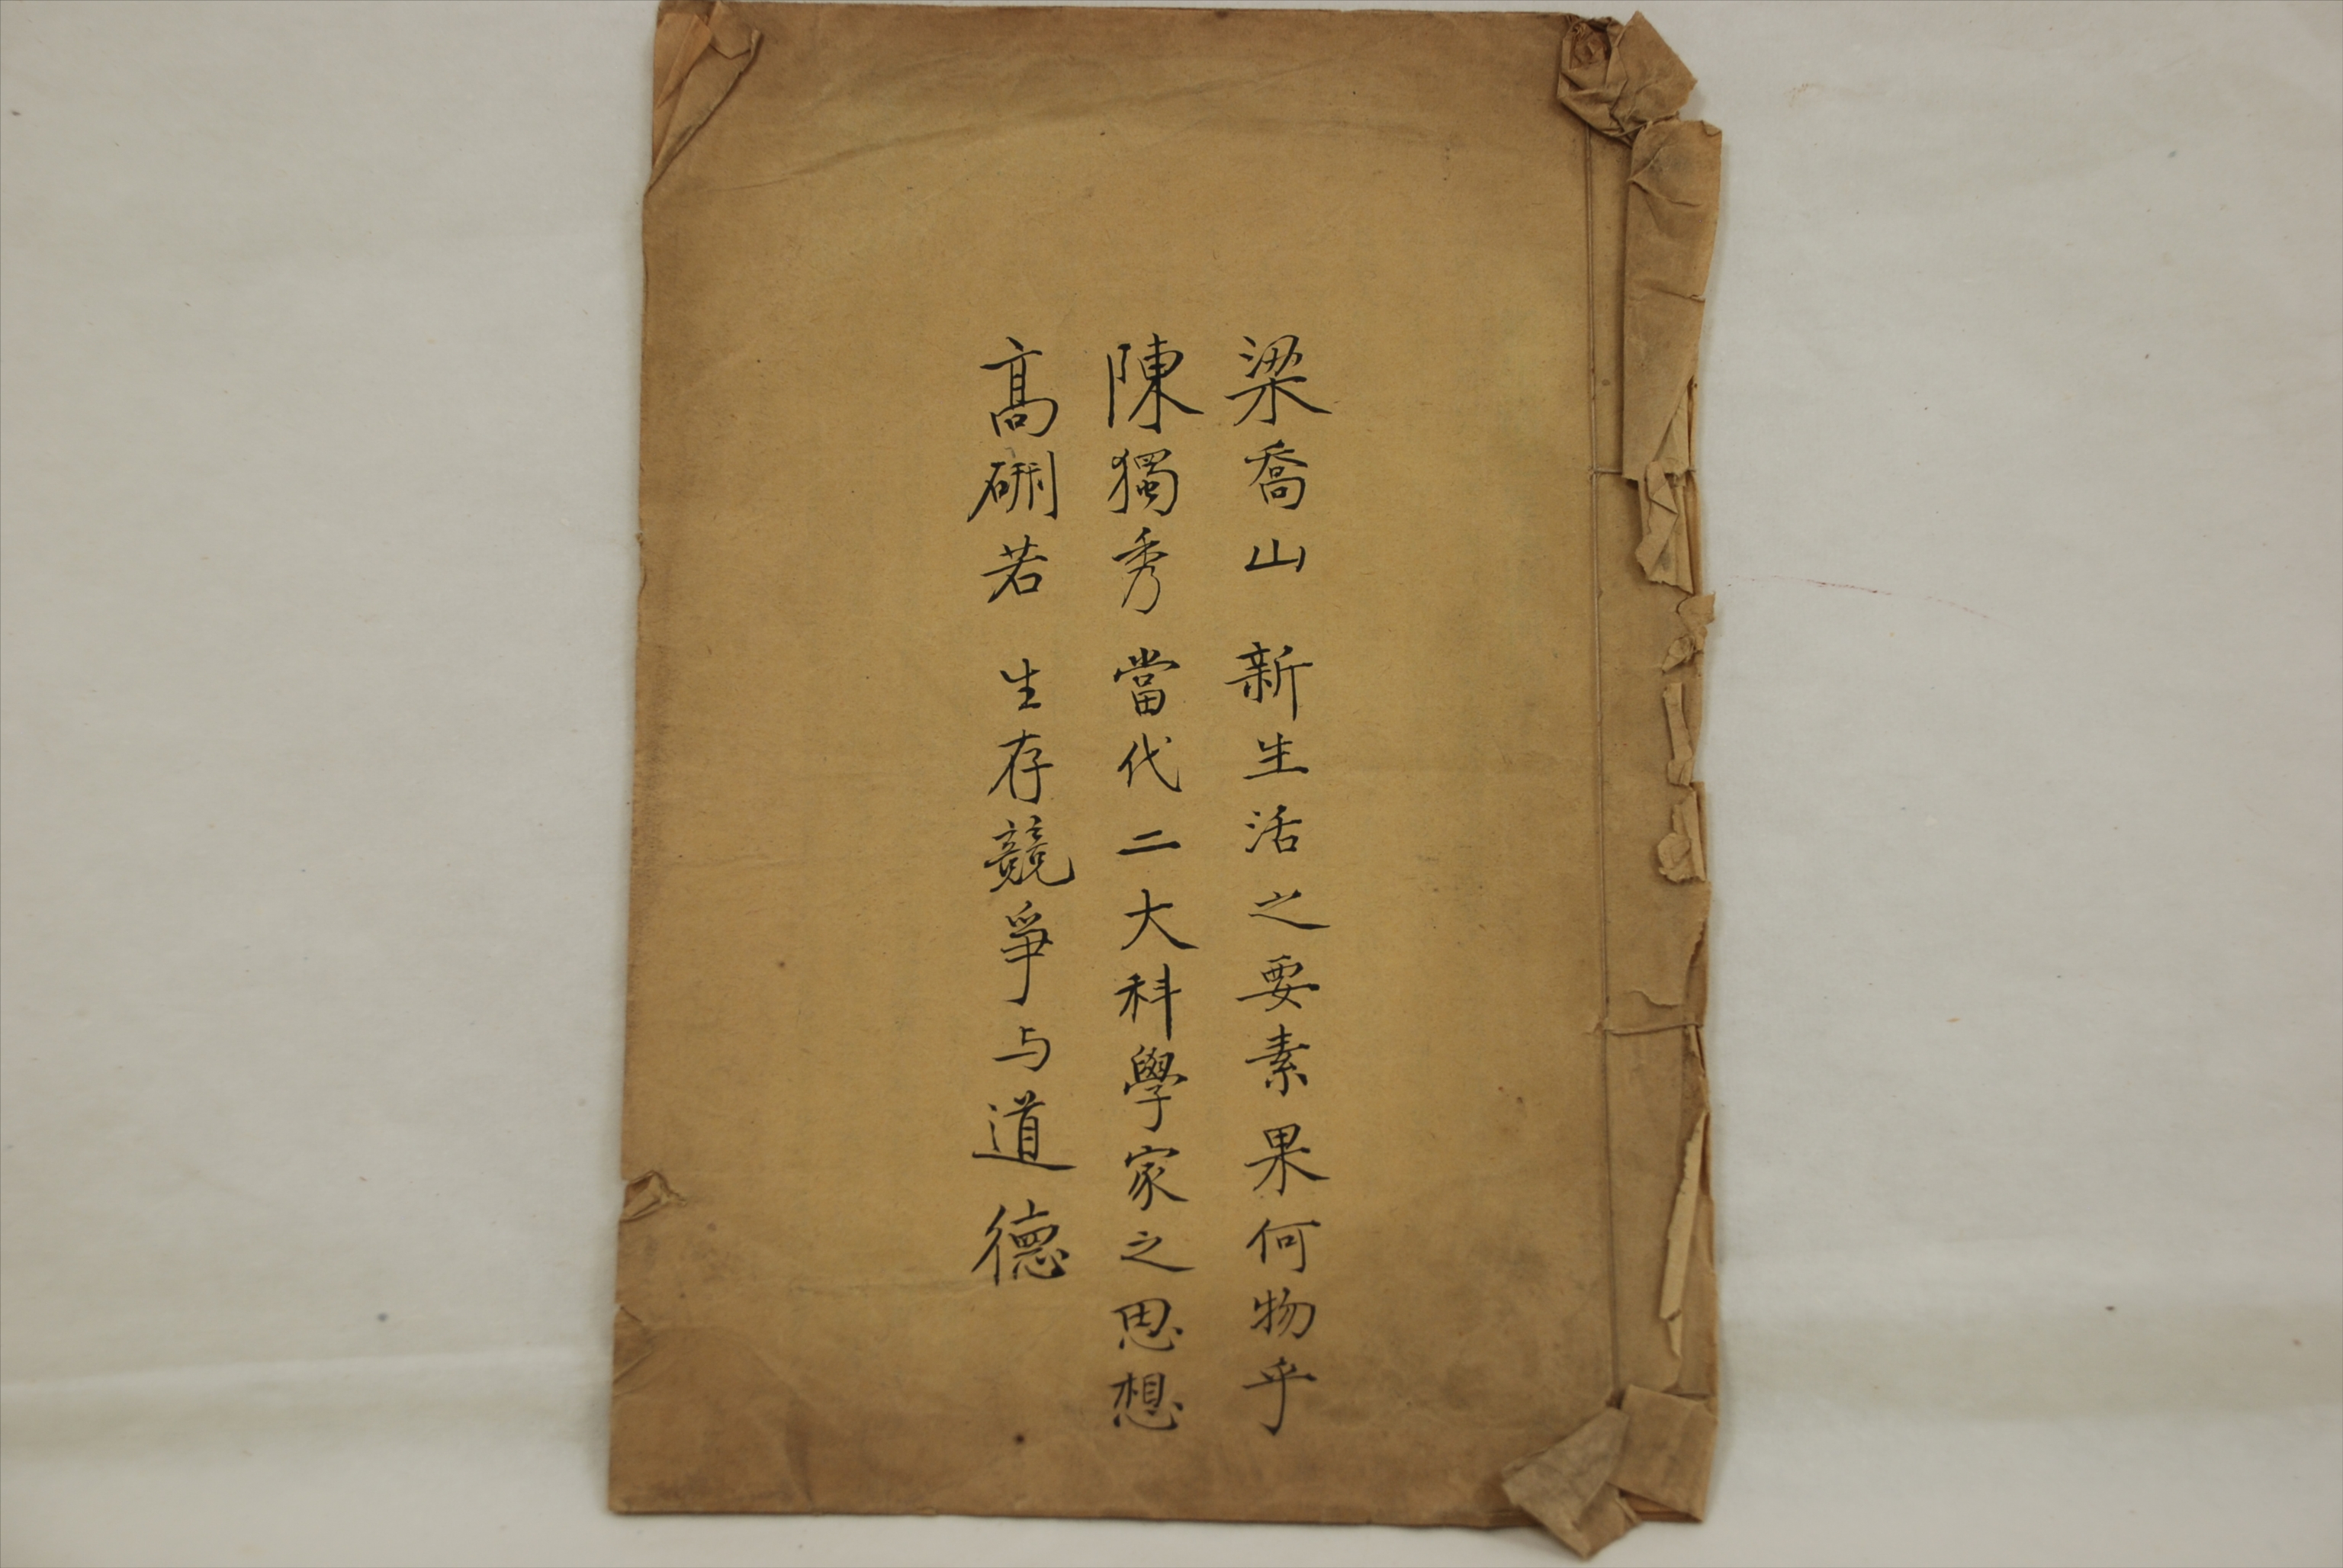 梁喬山 新生活之要素果何物乎
陳獨秀 當代二大科學家之思想
高硎若 生存競爭与道德